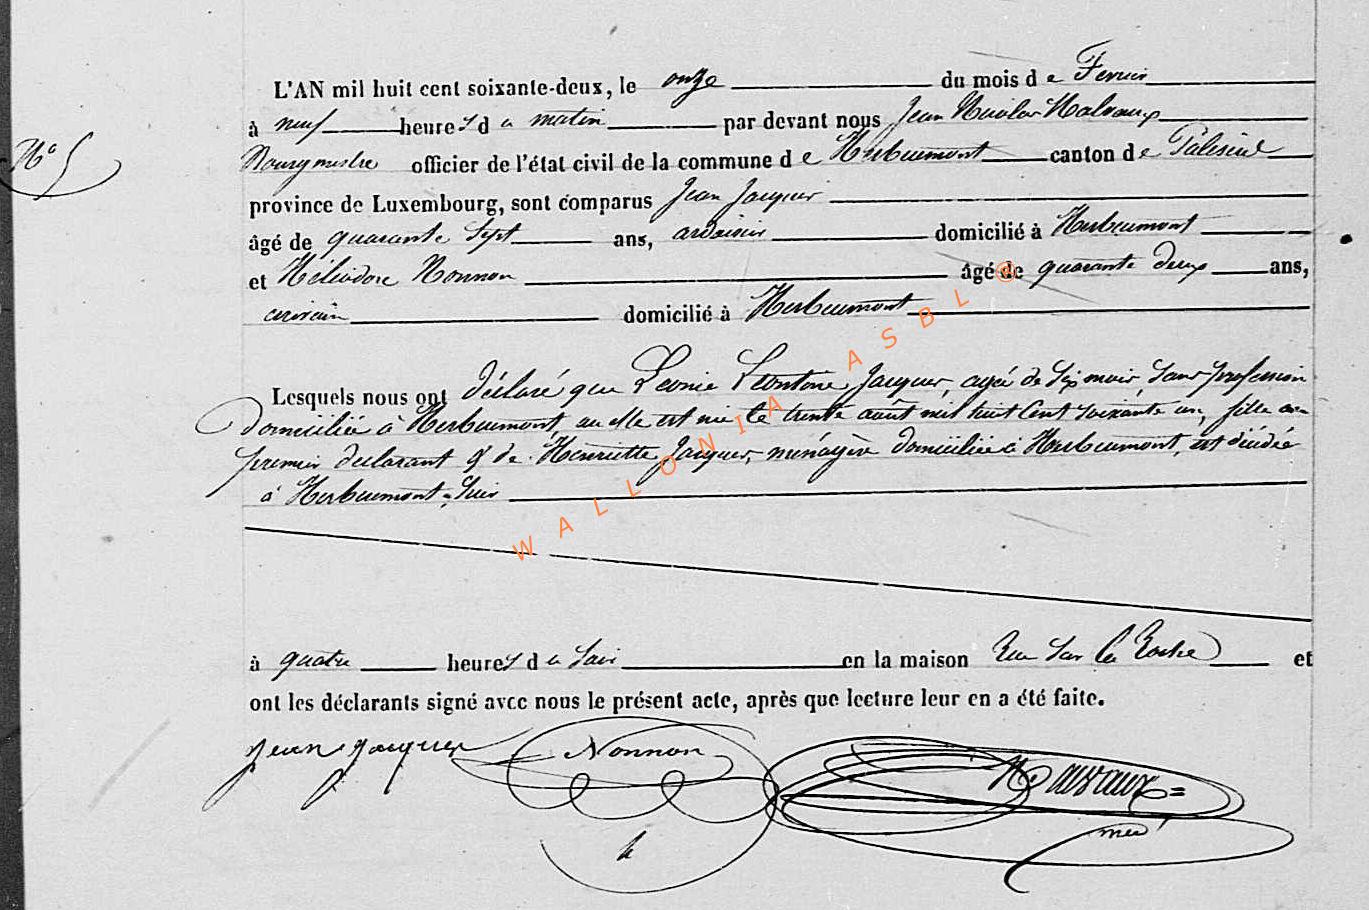 L'AN mil huit cent soixante-deux, le onze du mois de Fevrier
à neuf heures du matin par devant nous Jean Nicolas Malvaux
N° 5
Bourgmestre officier de l'état civil de la commune de Herbeumont canton de Paliseul
province de Luxembourg, sont comparus Jean Jacques
âgé de quarante sept ans, ardoisier domicilié à Herbeumont
et Héliodore Nonnon âgé de quarante deux ans,
domicilié à Herbeumont
Lesquels nous ont déclaré que Léonie Léontine Jacques, agée de six mois sans profession
domiciliée à Herbeumont, ou elle est née le trente août mil huit cent soixante un, fille du
premier déclarant & de Henriette Jacques, ménagère domiciliée à Herbeumont, est décédée
à Herbeumont, hier
à quatre heures du soir en la maison Rue sur la Roche et
ont les déclarants signé avec nous le présent acte, après que lecture leur en a été faite.
Jean Jacques Nonnon Malvaux
h
WALLONIA ASBL ©